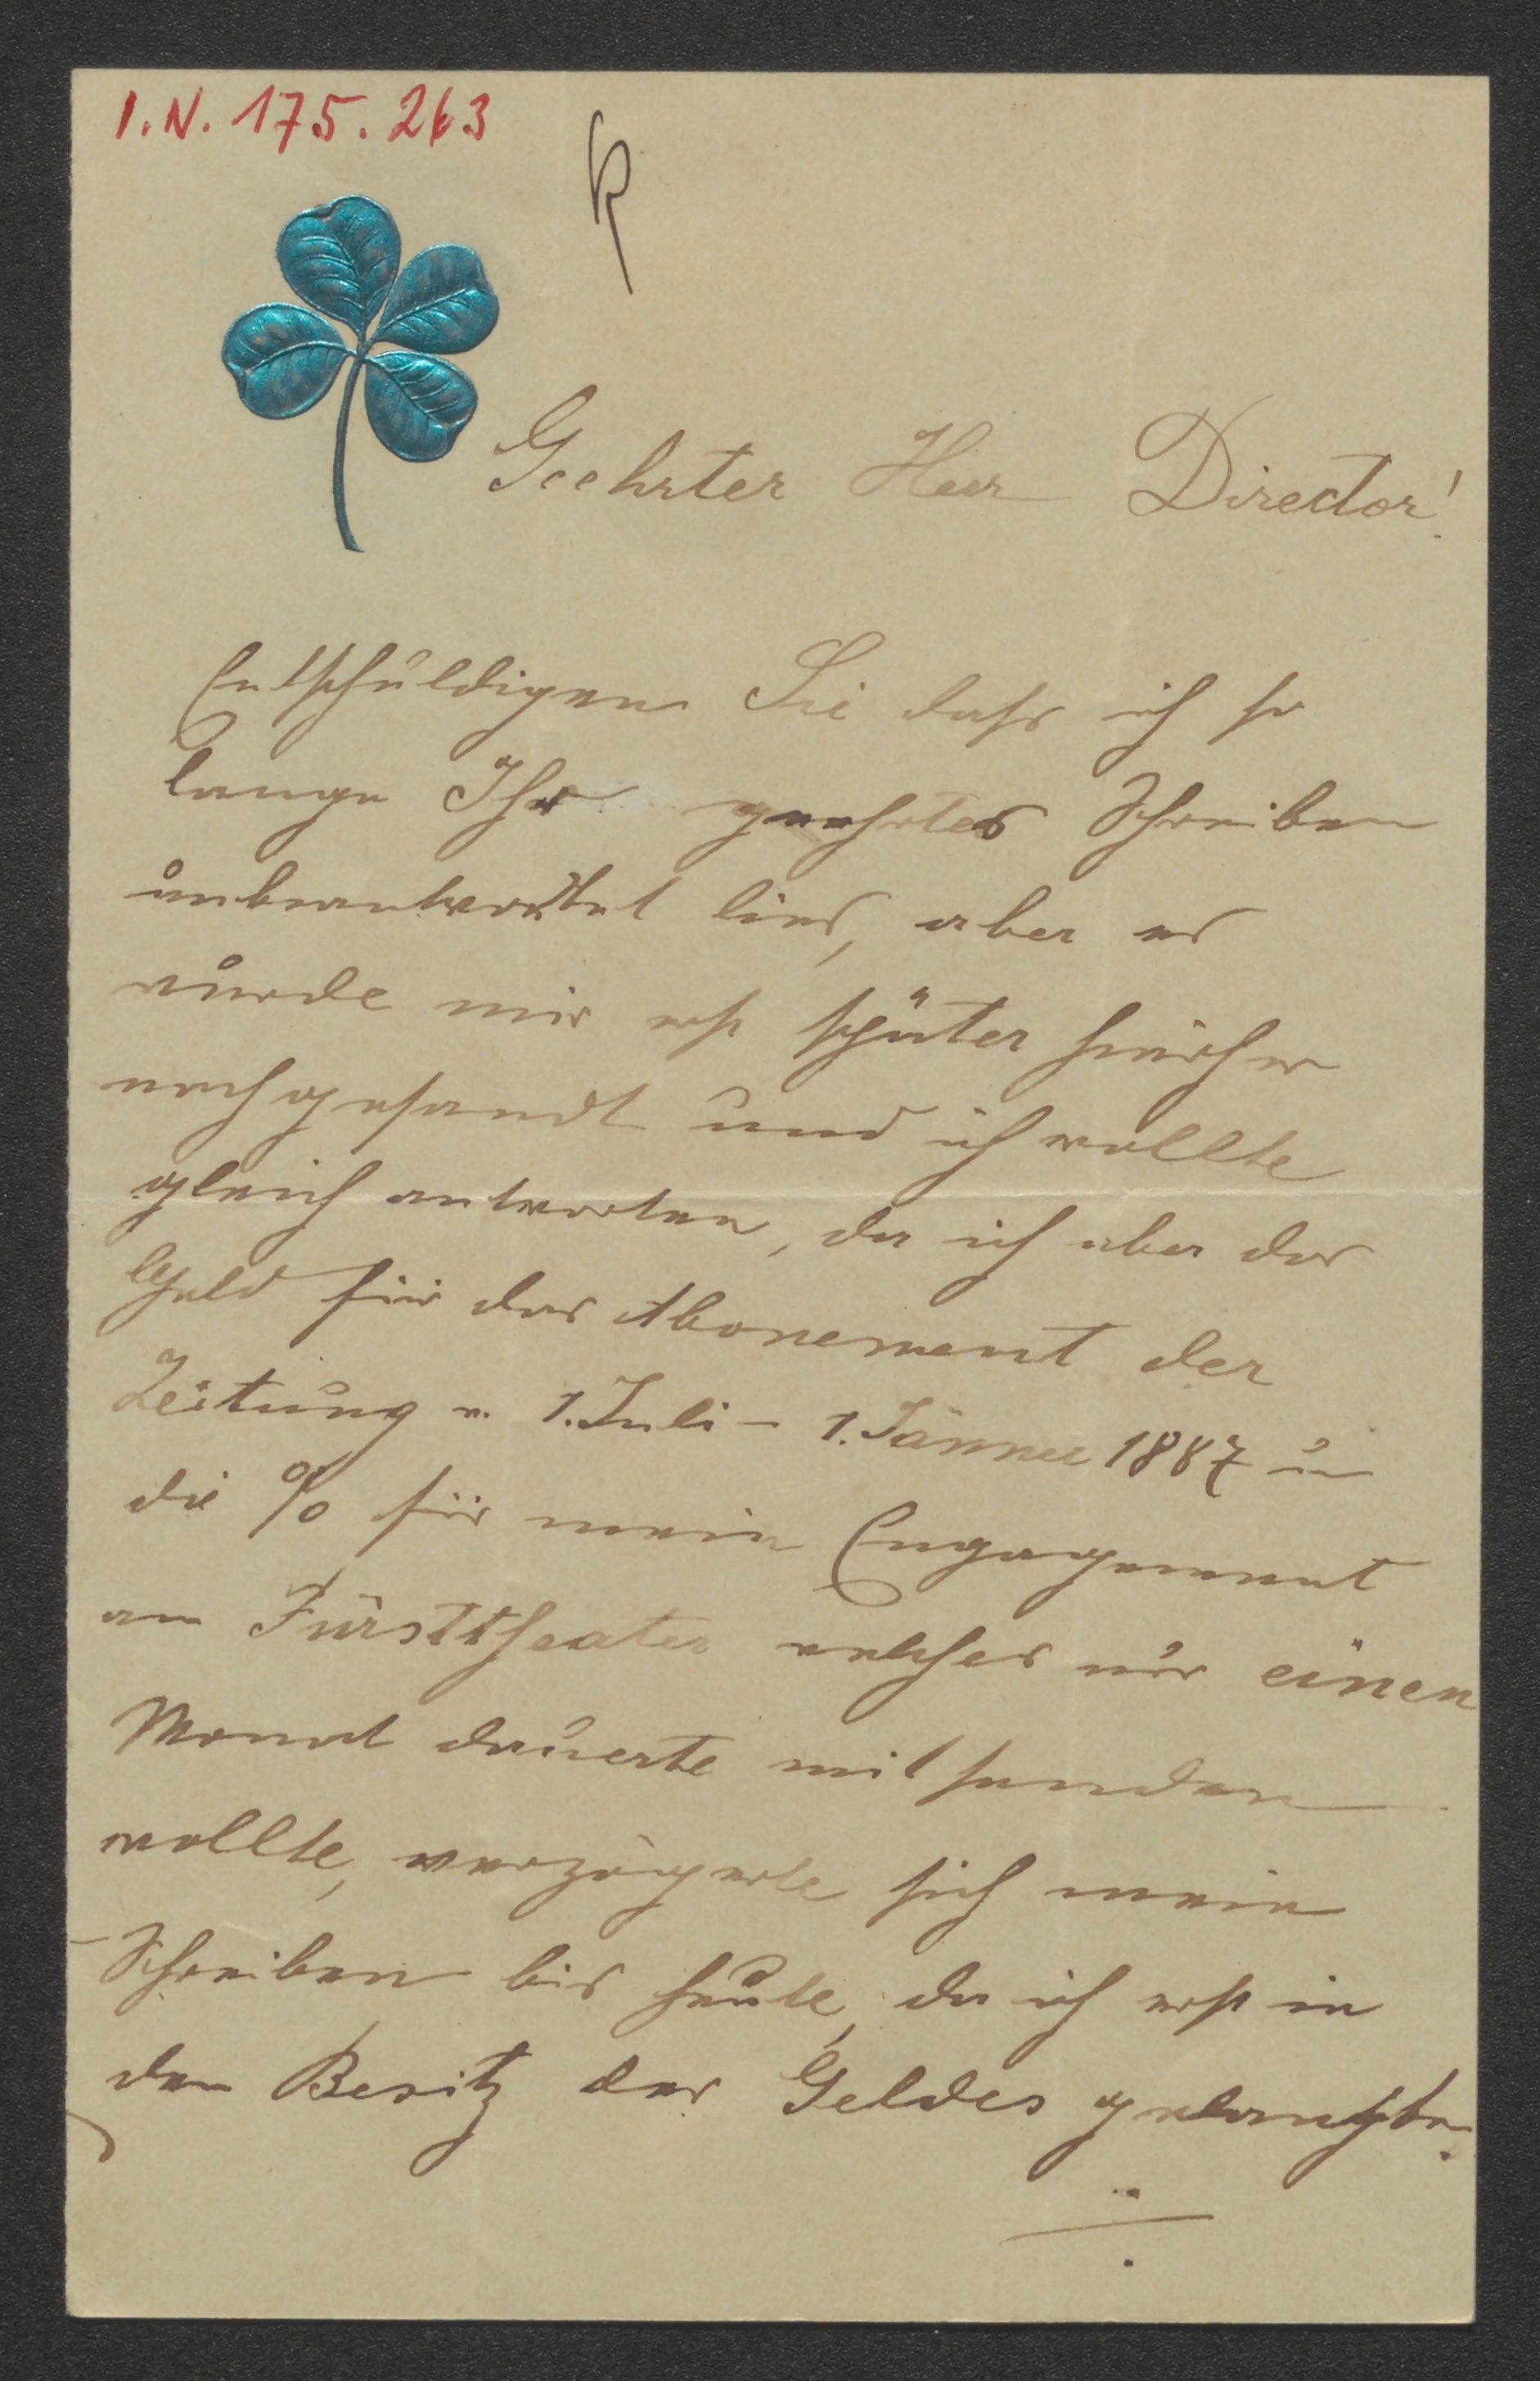 I.N. 175.263
k
Geehrter Herr Director!
Entschuldigen Sie dass ich so
lange Ihr geehrtes Schreiben
unbeantwortet lies, aber es
wurde mir erst später hieher
nachgesandt und ich wollte
gleich antworten, da ich aber das
Geld für das Abonement der
Zeitung v. 1. Juli – 1. Jänner 1887 u
die % für mein Engagement
am Fürsttheater welches nur einen
Monat dauerte mitsenden
wollte, verzögerte sich mein
Schreiben bis heute, da ich erst in
den Besitz des Geldes gelangte.